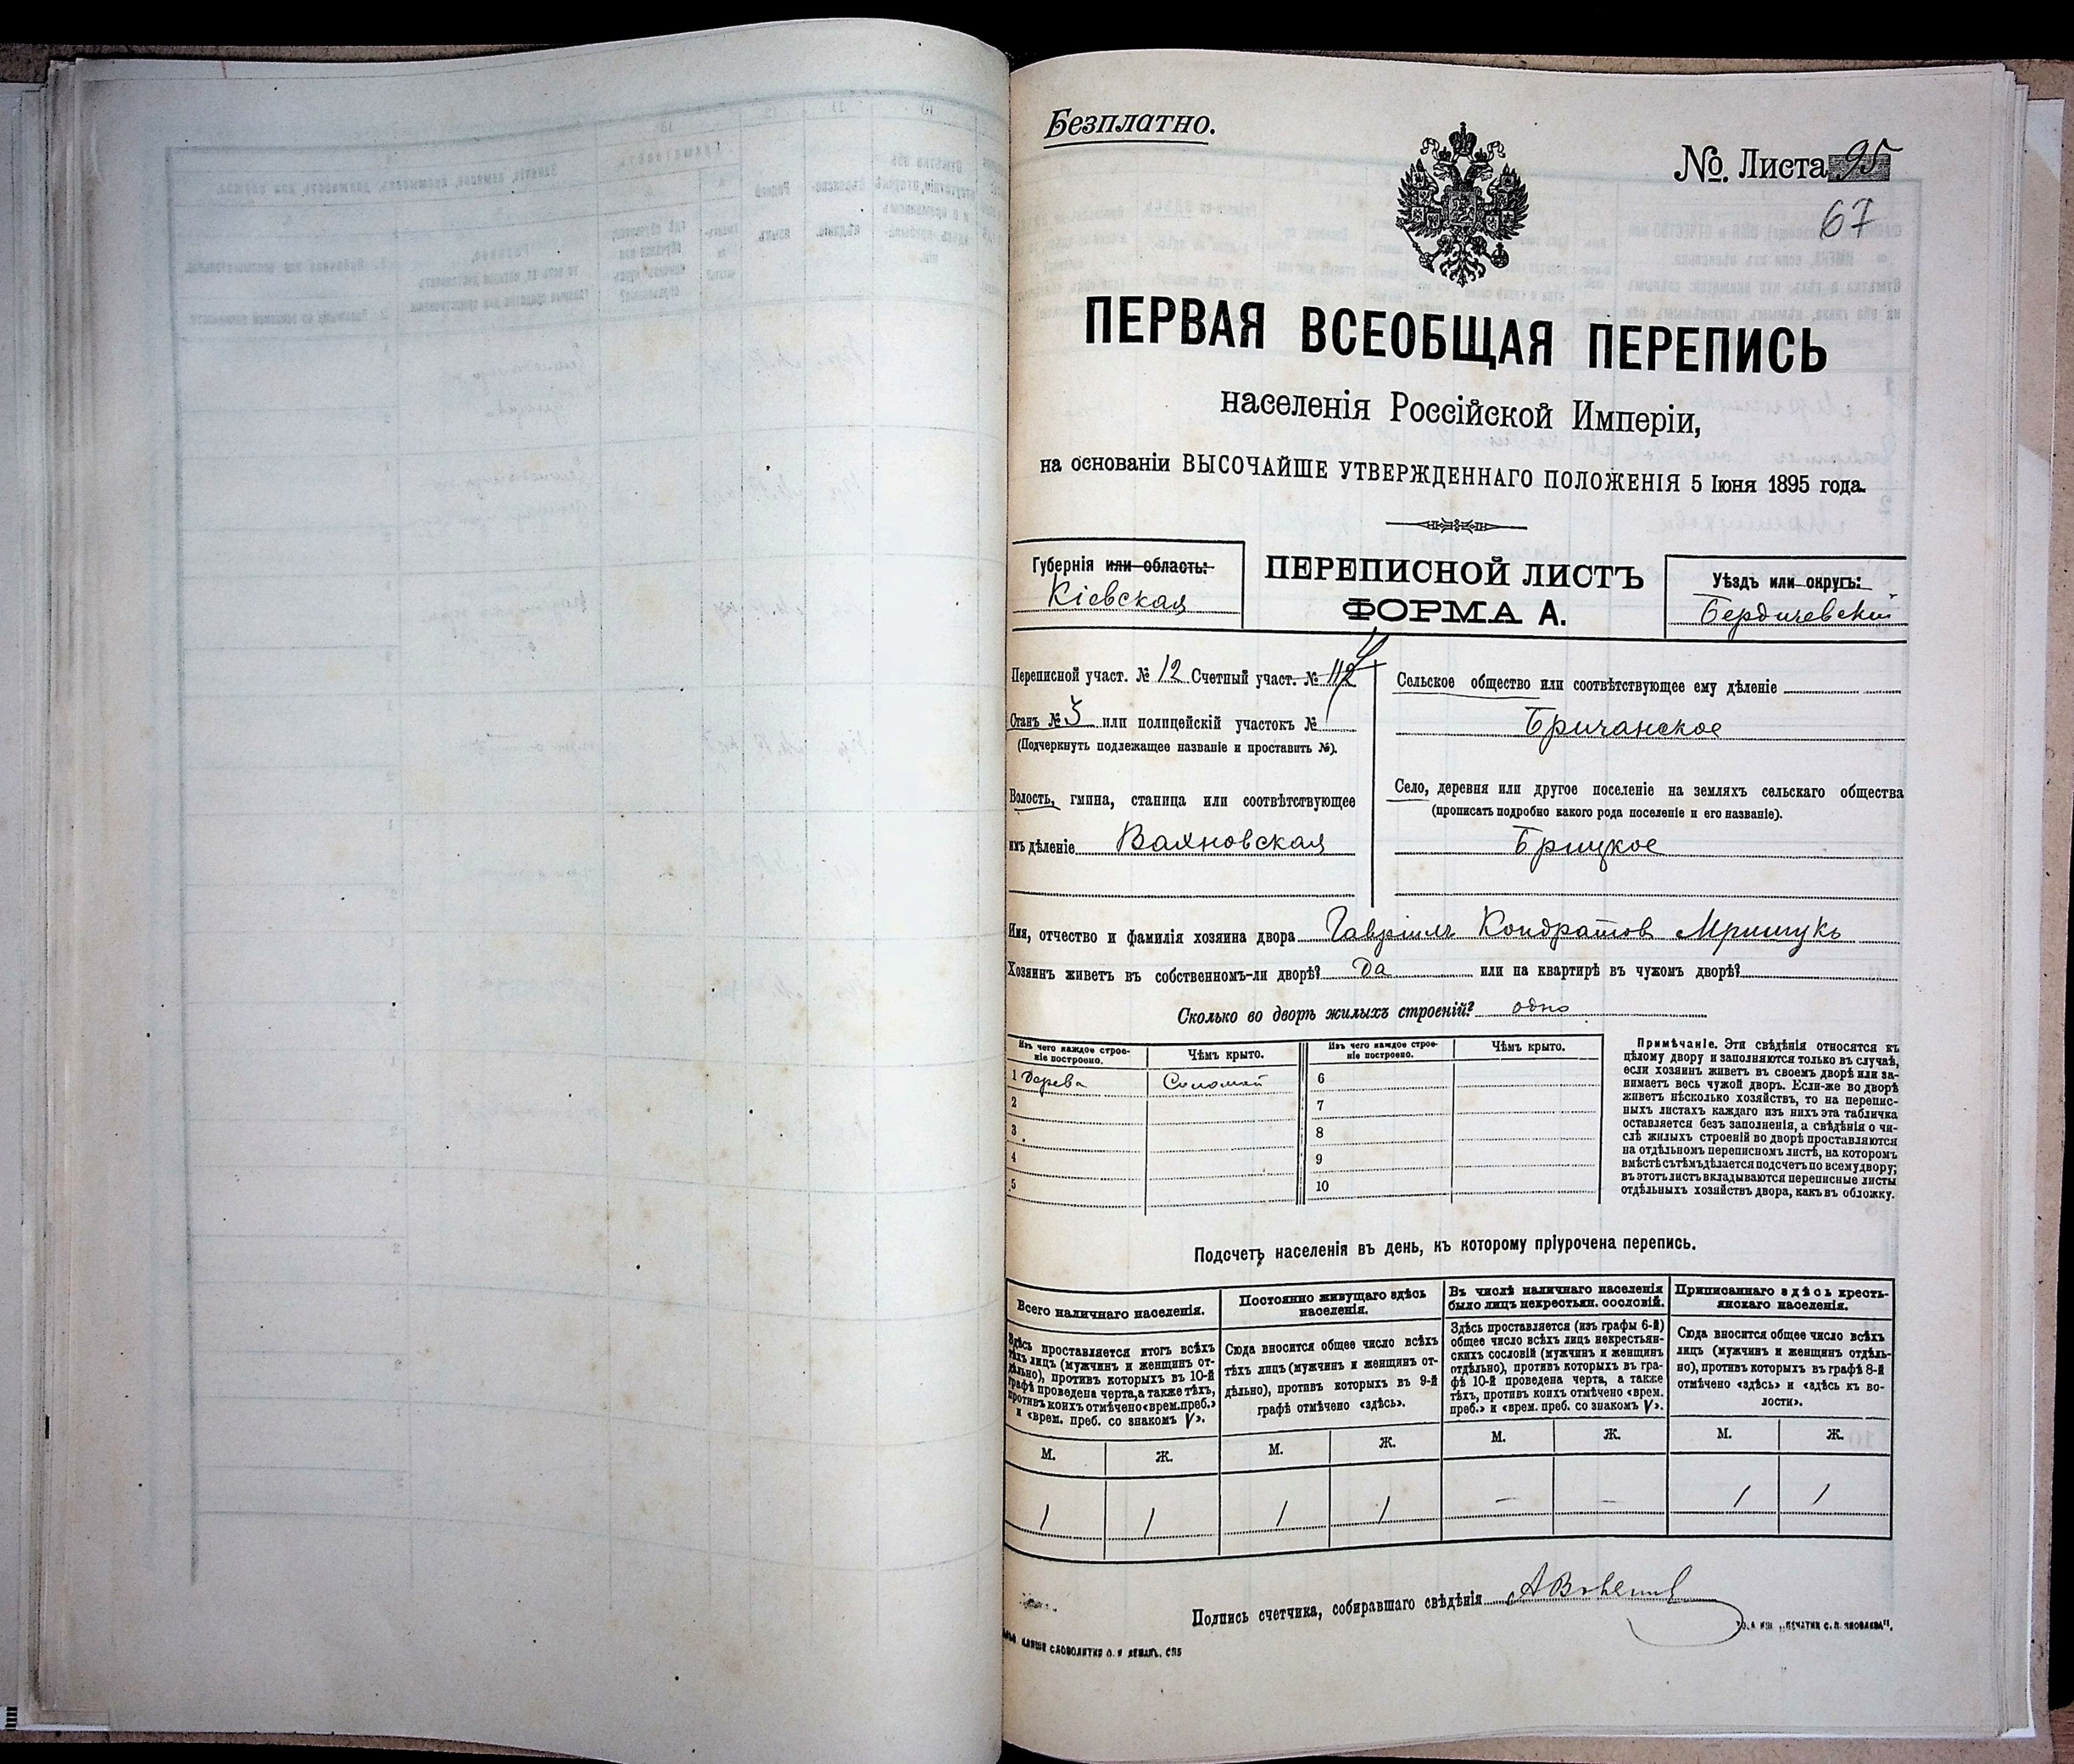 Безплатно.
№. Листа 95
67
ПЕРВАЯ ВСЕОБЩАЯ ПЕРЕПИСЬ
населенія Россійской Имперіи,
на основаніи ВЫСОЧАЙШЕ УТВЕРЖДЕННАГО ПОЛОЖЕНІЯ 5 Іюня 1895 года.
Губернія или область:
Кіевская
ПЕРЕПИСНОЙ ЛИСТЪ
ФОРМА А.
Уѣздъ или округъ:
Бердичевскій
Переписной участ. № 12 Счетный участ. №
Станъ № 3 или полицейскій участокъ №
(Подчеркнуть подлежащее названіе и проставить №).
Волость, гмина, станица или соотвѣтствующее
имъ дѣленіе Вахновская
Сельское общество или соотвѣтствующее ему дѣленіе
Бричанское
Село, деревня или другое поселеніе на земляхъ сельскаго общества
(прописать подробно какого рода поселеніе и его названіе).
Брицкое
Имя, отчество и фамилія хозяина двора Гавріилъ Кондратов Мришукъ
Хозяинъ живетъ въ собственномъ-ли дворѣ? да или на квартирѣ въ чужомъ дворѣ?
Сколько во дворѣ жилыхъ строеній? одно
Изъ чего каждое строе-
ніе построено.
Чѣмъ крыто.
Изъ чего каждое строе-
ніе построено.
Чѣмъ крыто.
1 Дерева Соломой 6
2 7
3 8
4 9
5 10
Примѣчаніе. Эти свѣдѣнія относятся къ
цѣлому двору и заполняются только въ случаѣ,
если хозяинъ живетъ въ своемъ дворѣ или за-
нимаетъ весь чужой дворъ. Если-же во дворѣ
живетъ нѣсколько хозяйствъ, то на перепис-
ныхъ листахъ каждаго изъ нихъ эта табличка
оставляется безъ заполненія, а свѣдѣнія о чи-
слѣ жилыхъ строеній во дворѣ проставляются
на отдѣльномъ переписномъ листѣ, на которомъ
вмѣстѣ съ тѣмъ дѣлается подсчетъ по всему двору;
въ этотъ листъ вкладываются переписные листы
отдѣльныхъ хозяйствъ двора, какъ въ обложку.
Подсчетъ населенія въ день, къ которому пріурочена перепись.
Всего наличнаго населенія.
Здѣсь проставляется итогъ всѣхъ
тѣхъ лицъ (мужчинъ и женщинъ от-
дѣльно), противъ которыхъ въ 10-й
графѣ проведена черта, а также тѣхъ,
противъ коихъ отмѣчено «врем. преб.»
и «врем. преб. со знакомъ V».
Постоянно живущаго здѣсь
населенія.
Сюда вносится общее число всѣхъ
тѣхъ лицъ (мужчинъ и женщинъ от-
дѣльно), противъ которыхъ въ 9-й
графѣ отмѣчено «здѣсь».
Въ числѣ наличнаго населенія
было лицъ некрестьян. сословій.
Здѣсь проставляется (изъ графы 6-й)
общее число всѣхъ лицъ некрестьян-
скихъ сословій (мужчинъ и женщинъ
отдѣльно), противъ которыхъ въ гра-
фѣ 10-й проведена черта, а также
тѣхъ, противъ коихъ отмѣчено «врем.
преб.» и «врем. преб. со знакомъ V».
Приписаннаго здѣсь кресть-
янскаго населенія.
Сюда вносится общее число всѣхъ
лицъ (мужчинъ и женщинъ отдѣль-
но), противъ которыхъ въ графѣ 8-й
отмѣчено «здѣсь» и «здѣсь къ во-
лости».
М. Ж. М. Ж. М. Ж. М. Ж.
1 1 1 1 – – 1 1
Подпись счетчика, собиравшаго свѣдѣнія
СЛОВОЛИТНЯ О. И ЛЕМАНЪ. СПБ
„ПЕЧАТНЯ С. П. ЯКОВЛЕВА".